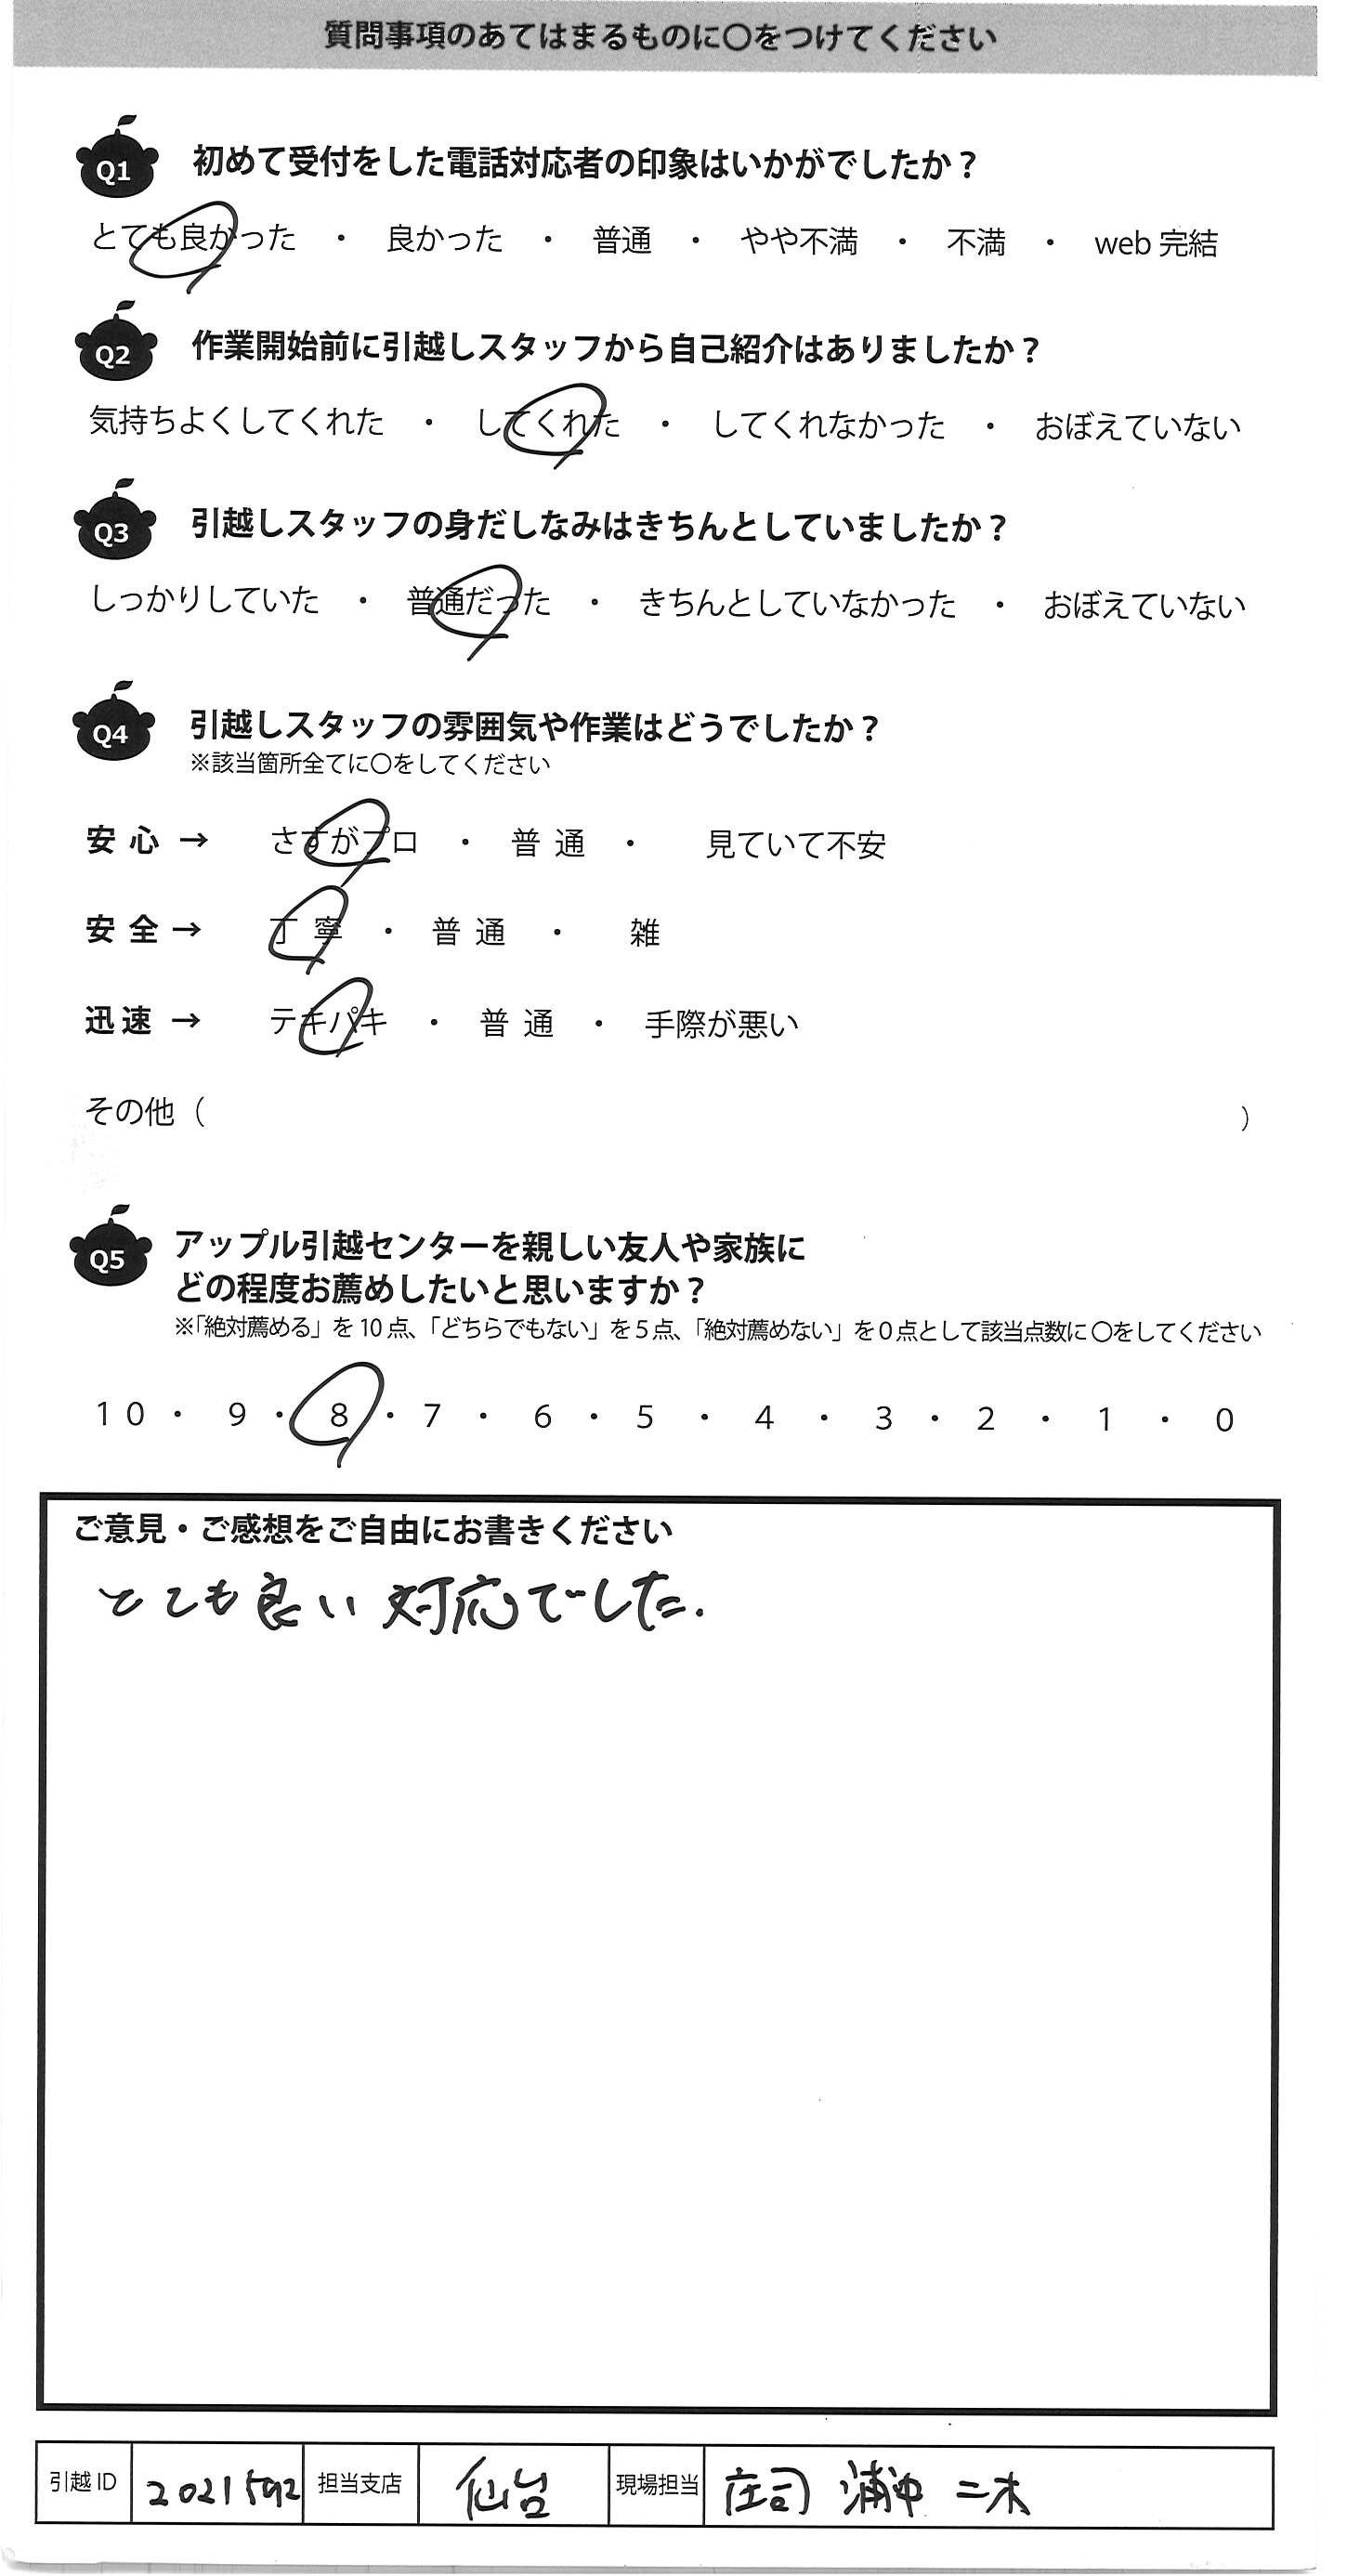 質問事項のあてはまるものに〇をつけてください
Q1 初めて受付をした電話対応者の印象はいかがでしたか？
とても良かった ・ 良かった ・ 普通 ・ やや不満 ・ 不満 ・ web 完結
Q2 作業開始前に引越しスタッフから自己紹介はありましたか？
気持ちよくしてくれた ・ してくれた ・ してくれなかった ・ おぼえていない
Q3 引越しスタッフの身だしなみはきちんとしていましたか？
しっかりしていた ・ 普通だった ・ きちんとしていなかった ・ おぼえていない
Q4 引越しスタッフの雰囲気や作業はどうでしたか？
※該当箇所全てに〇をしてください
安心 → さすがプロ ・ 普通 ・ 見ていて不安
安全 → 丁寧 ・ 普通 ・ 雑
迅速 → テキパキ ・ 普通 ・ 手際が悪い
その他（ ）
Q5 アップル引越センターを親しい友人や家族に
どの程度お薦めしたいと思いますか？
※「絶対薦める」を10点、「どちらでもない」を5点、「絶対薦めない」を0点として該当点数に〇をしてください
10 ・ 9 ・ 8 ・ 7 ・ 6 ・ 5 ・ 4 ・ 3 ・ 2 ・ 1 ・ 0
ご意見・ご感想をご自由にお書きください
とても良い対応でした.
引越ID 2021592 担当支店 仙台 現場担当 庄司 浦沖 二木